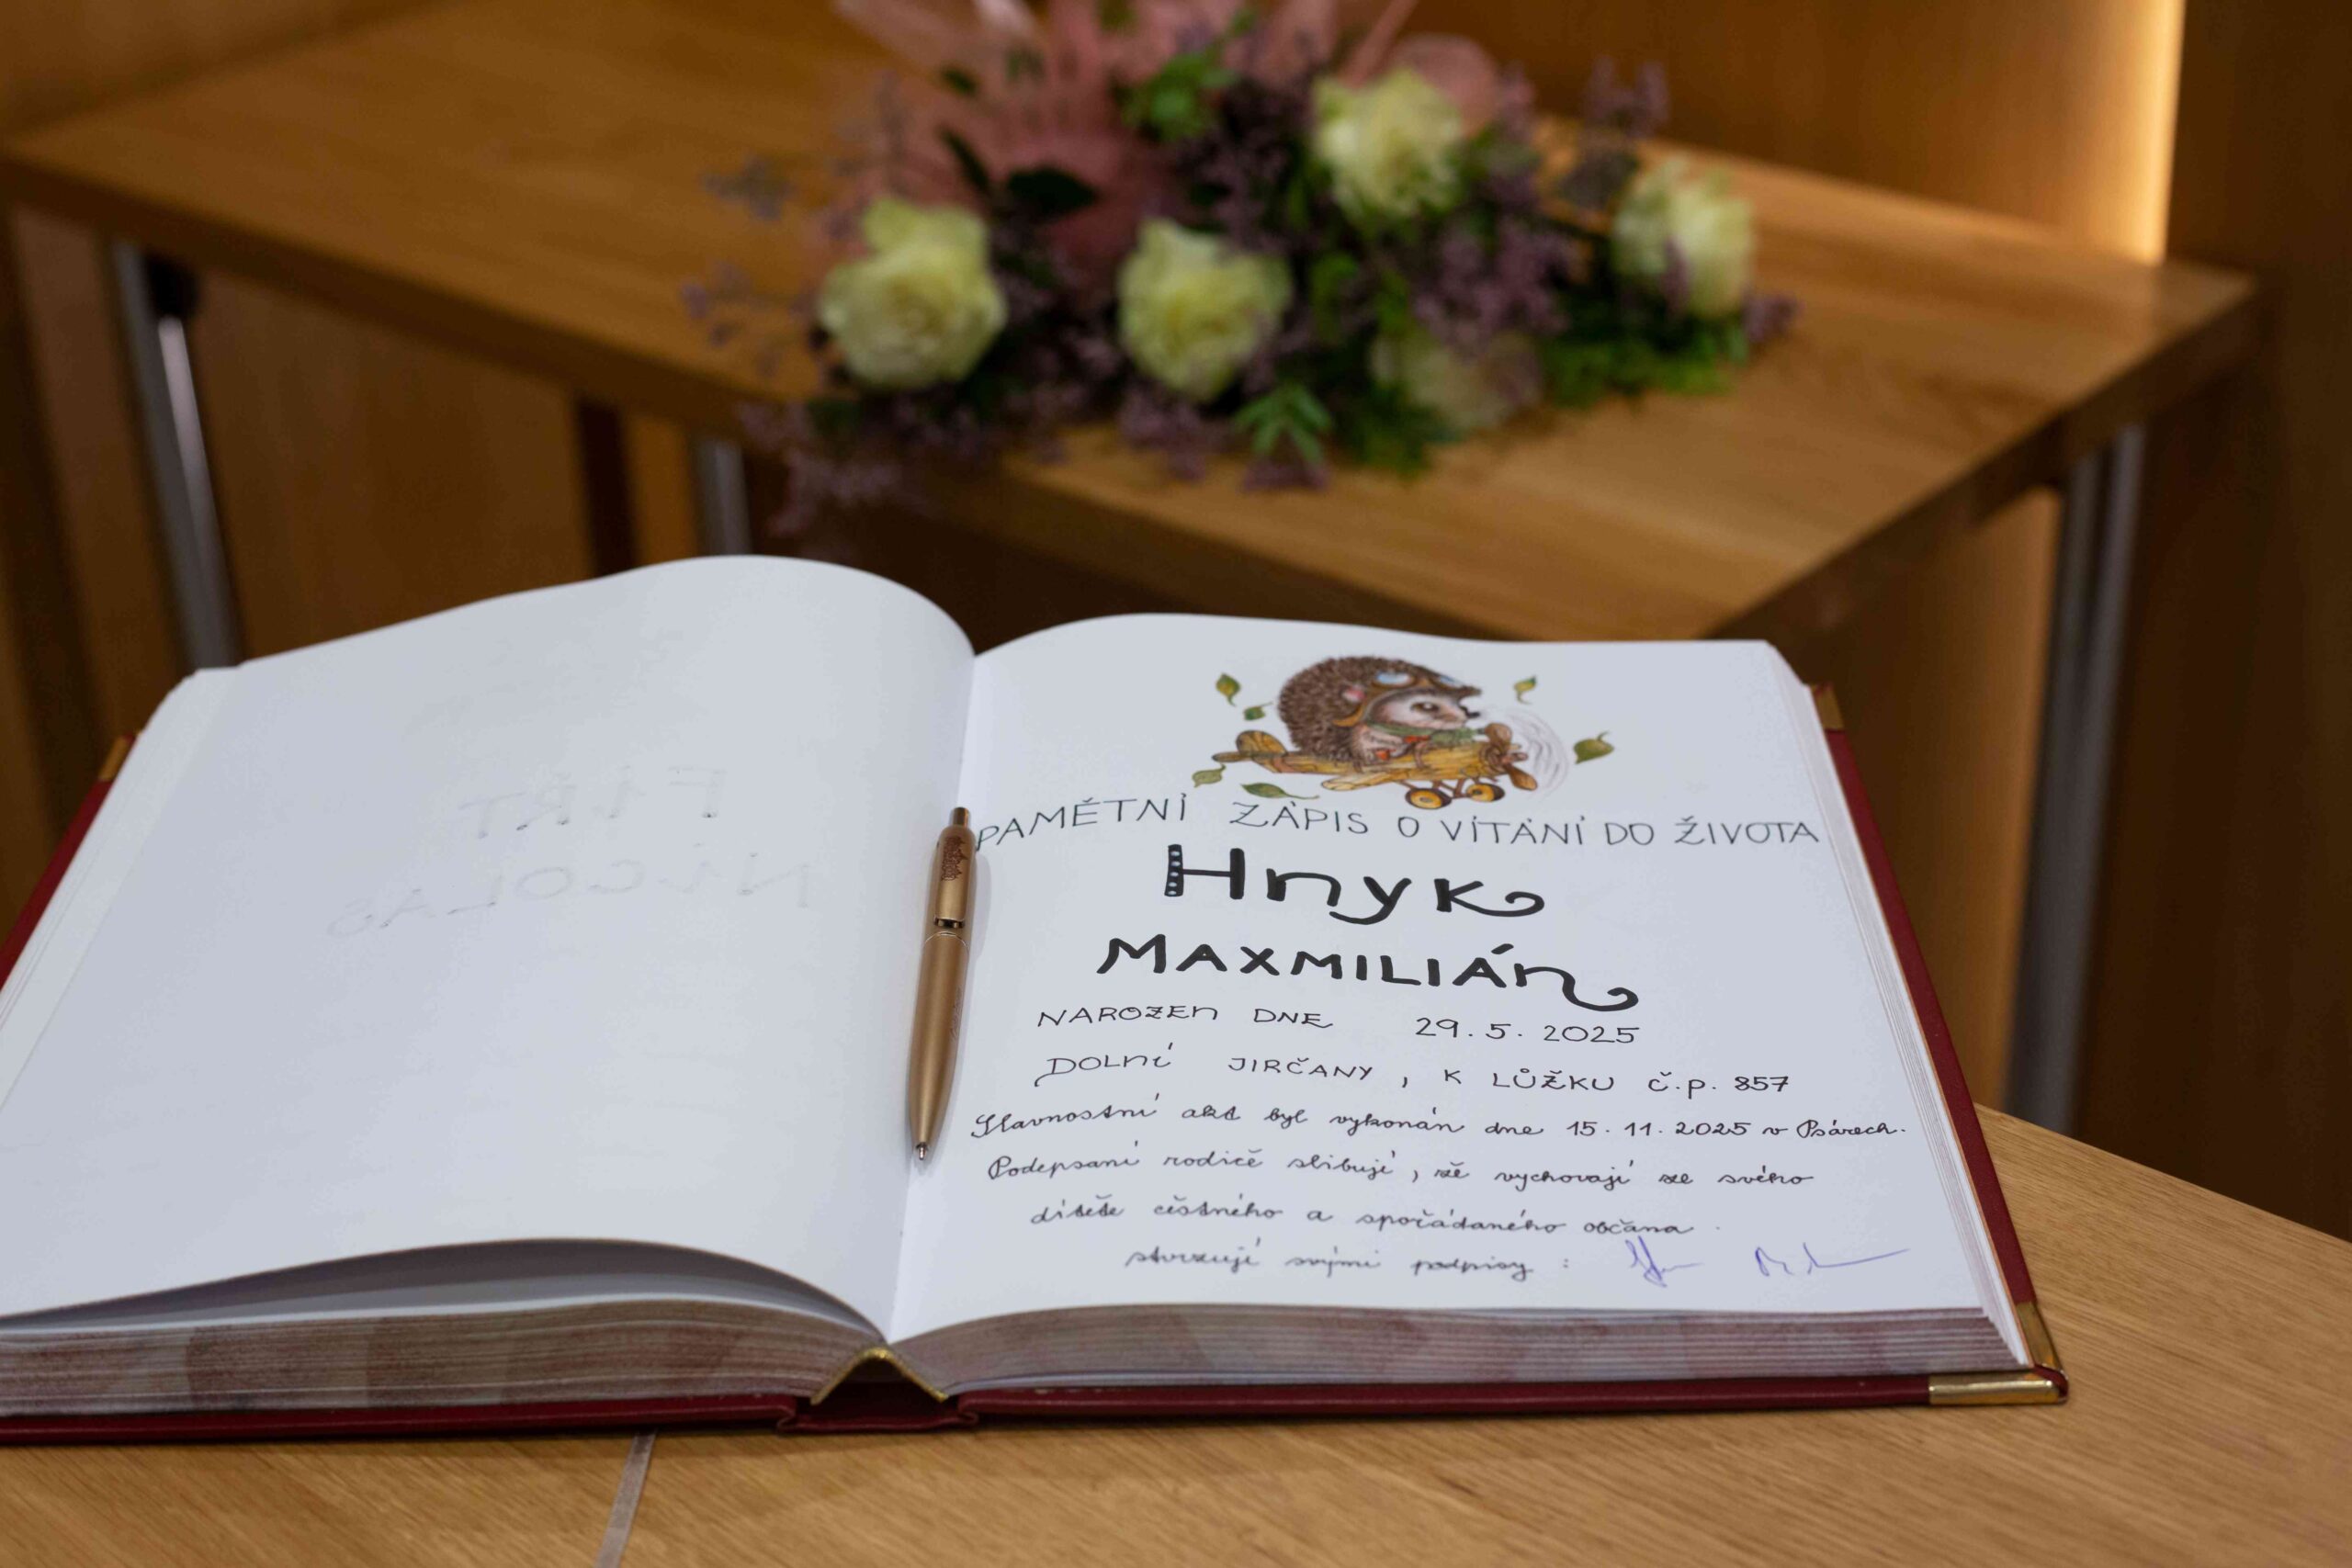 FIRT
NICOLAS
PAMĚTNÍ ZÁPIS O VÍTÁNÍ DO ŽIVOTA
Hnyk
MAXMILIÁN
NAROZEN DNE 29.5.2025
DOLNÍ JIRČANY, K LŮŽKU Č.P. 857
Slavnostní akt byl vykonán dne 15.11.2025 v Psárech.
Podepsaní rodiče slibují, že vychovají ze svého
dítěte čestného a spořádaného občana
stvrzují svými podpisy :